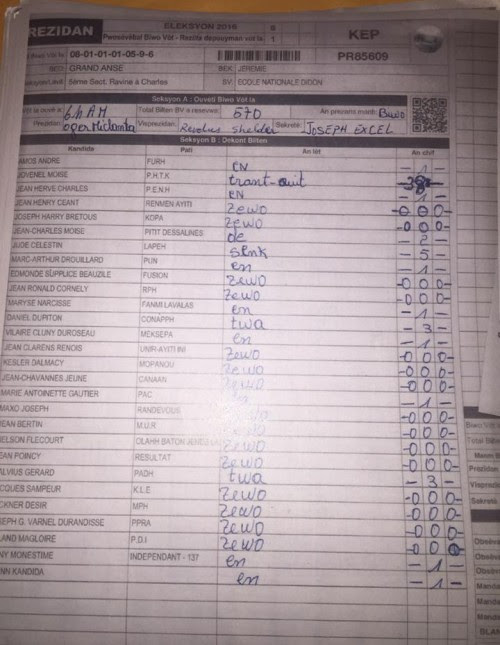 REZIDAN
ELEKSYON 2016
Pwosèvèbal Biwo Vòt - Rezilta depouyman vòt la
KEP
Biwo Vòt la: 08-01-01-01-05-9-6
PR85609
GRAND ANSE
BEK: JEREMIE
5ème Sect. Ravine à Charles
SV: ECOLE NATIONALE DIDON
Seksyon A : Ouvèti Biwo Vòt la
6h AM
Total Bilten BV a resevwa: 670
Sekretè: JOSEPH EXCEL
Seksyon B : Dekont Bilten
Kandida Pati An lèt An chif
AMOS ANDRE FURH EN - 1 -
JOVENEL MOISE P.H.T.K trant-ouit 38
JEAN HERVE CHARLES P.E.N.H EN - 1 -
JEAN HENRY CEANT RENMEN AYITI zewo -0 0 0-
JOSEPH HARRY BRETOUS KOPA zewo -0 0 0-
JEAN-CHARLES MOISE PITIT DESSALINES de - 2 -
JUDE CELESTIN LAPEH senk - 5 -
MARC-ARTHUR DROUILLARD PUN en - 1 -
EDMONDE SUPPLICE BEAUZILE FUSION zewo -0 0 0-
JEAN RONALD CORNELY RPH zewo -0 0 0-
MARYSE NARCISSE FANMI LAVALAS en - 1 -
DANIEL DUPITON CONAPPH twa - 3 -
VILAIRE CLUNY DUROSEAU MEKSEPA en - 1 -
JEAN CLARENS RENOIS UNIR-AYITI INI zewo -0 0 0-
KESLER DALMACY MOPANOU zewo -0 0 0-
JEAN-CHAVANNES JEUNE CANAAN zewo -0 0 0-
MARIE ANTOINETTE GAUTIER PAC - 1 -
MAXO JOSEPH RANDEVOUS -0 0 0-
JEAN BERTIN M.U.R -0 0 0-
NELSON FLECOURT OLAHH BATON zewo -0 0 0-
JEAN POINCY RESULTAT zewo -0 0 0-
GERARD PADH twa - 3 -
JACQUES SAMPEUR K.L.E zewo -0 0 0-
DESIR MPH zewo -0 0 0-
JOSEPH G. VARNEL DURANDISSE PPRA zewo -0 0 0-
MAGLOIRE P.D.I zewo -0 0 0-
MONESTIME INDEPENDANT - 137 en - 1 -
KANDIDA en - 1 -